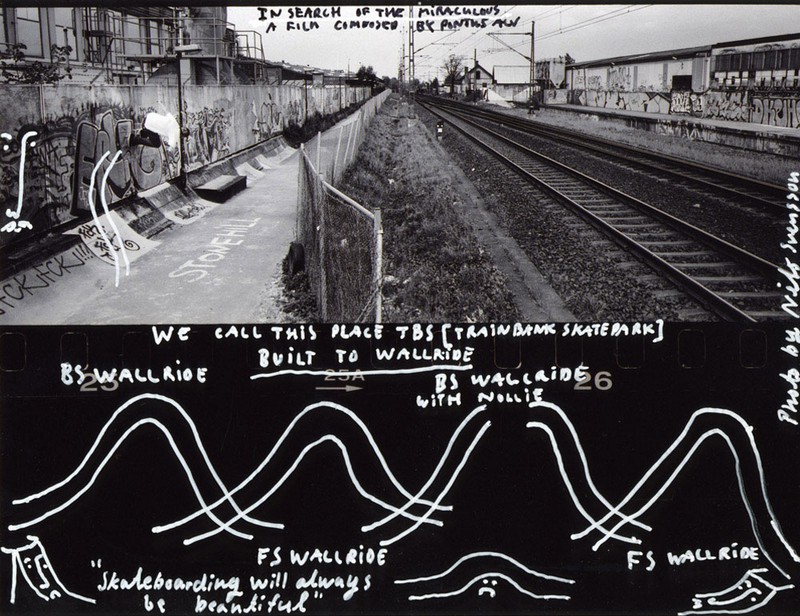 IN SEARCH OF THE MIRACULOUS
A FILM COMPOSED BY PONTUS ALV
STONEHILL
Photo by Nils Svensson
WE CALL THIS PLACE TBS [TRAINBANKSKATEPARK]
BUILT TO WALLRIDE
BS WALLRIDE
25
25A
BS WALLRIDE
26
WITH NOLLIE
FS WALLRIDE
FS WALLRIDE
"Skateboarding will always
be beautiful"